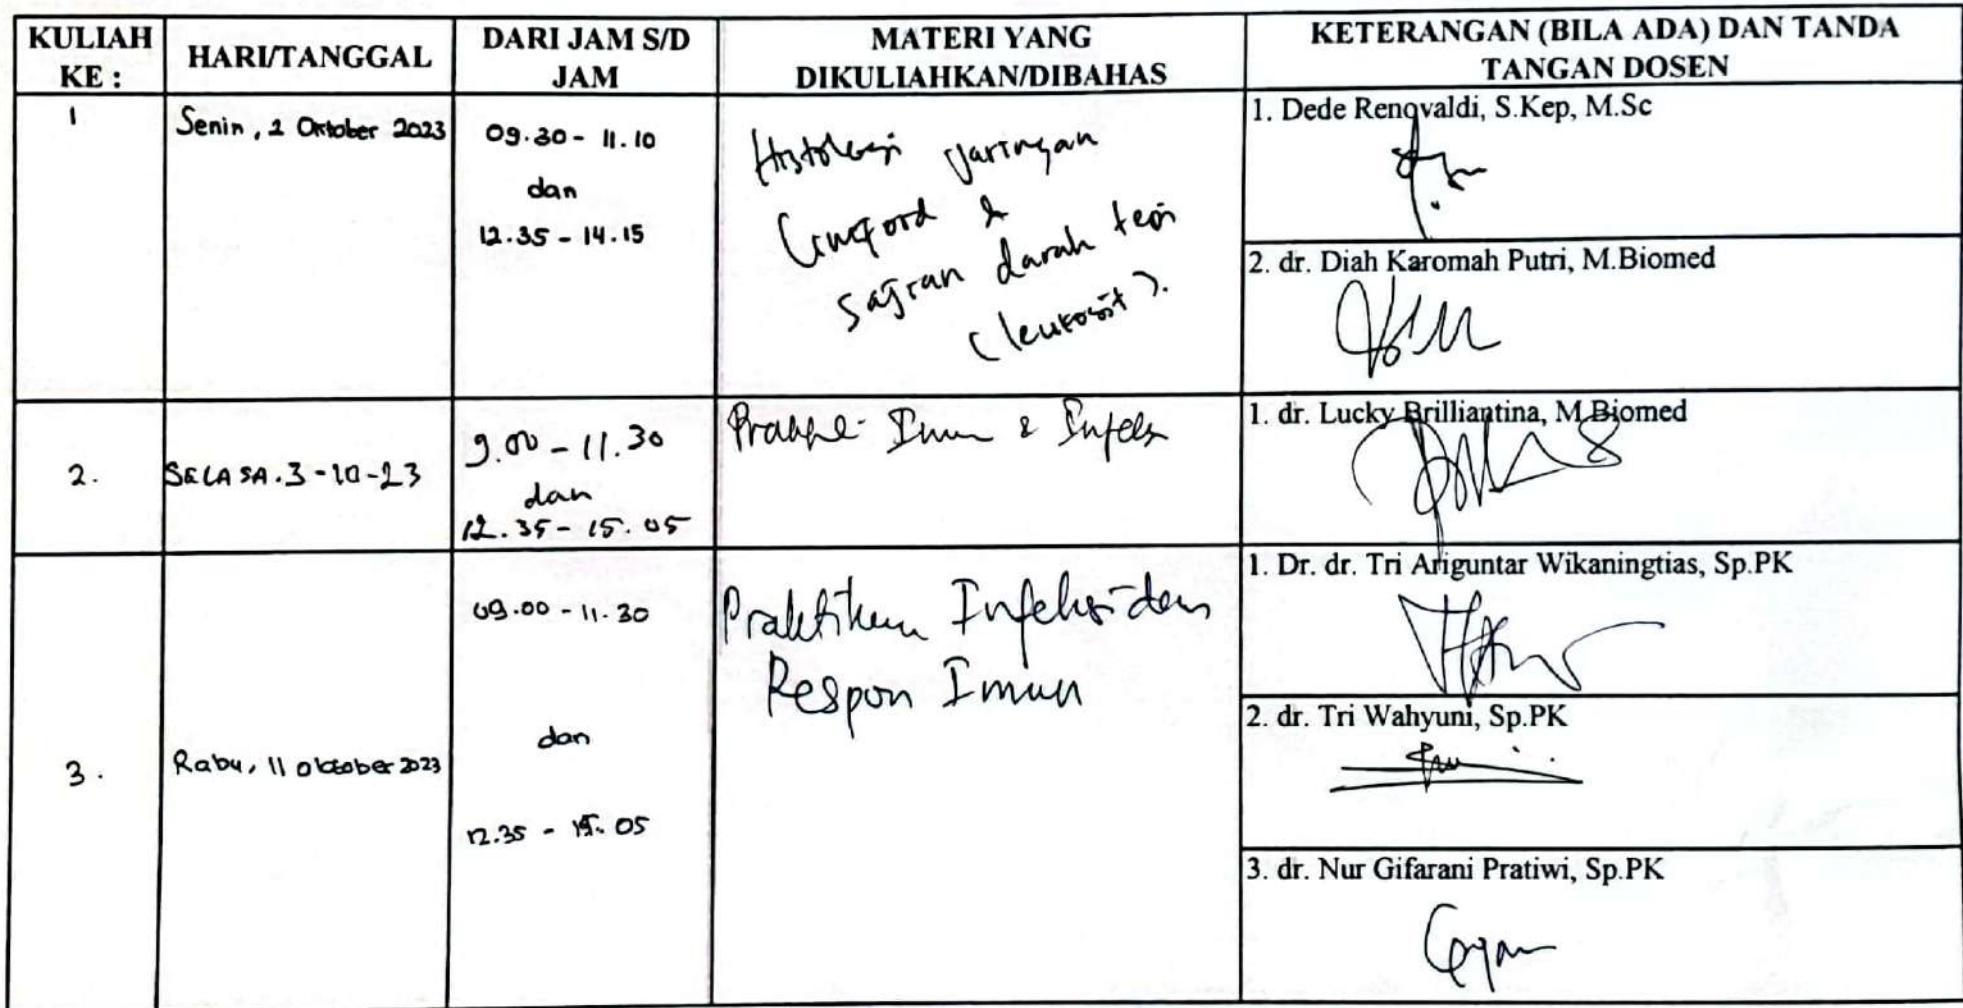 KULIAH KE :
HARI/TANGGAL
DARI JAM S/D JAM
MATERI YANG DIKULIAHKAN/DIBAHAS
KETERANGAN (BILA ADA) DAN TANDA TANGAN DOSEN
1
Senin, 2 Oktober 2023
09.30 - 11.10
dan
12.35 - 14.15
Histologi jaringan
Limfoid &
sajian darah tepi
(leukosit).
1. Dede Renovaldi, S.Kep, M.Sc
2. dr. Diah Karomah Putri, M.Biomed
2.
SELASA. 3-10-23
9.00 - 11.30
dan
12.35 - 15.05
Imun & Infeksi
1. dr. Lucky Brilliantina, M.Biomed
3.
Rabu, 11 oktober 2023
09.00 - 11.30
dan
12.35 - 15.05
Praktikum Infeksi dan
Respon Imun
1. Dr. dr. Tri Ariguntar Wikaningtias, Sp.PK
2. dr. Tri Wahyuni, Sp.PK
3. dr. Nur Gifarani Pratiwi, Sp.PK